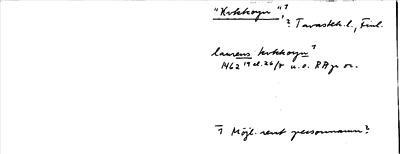 "Kukkoyn"?
? Tavasteh. l., Finl.
laurens kukkoyn ?
1462 19 el. 26/8 u. o. RAp or.
? Möjl. rent personnamn?